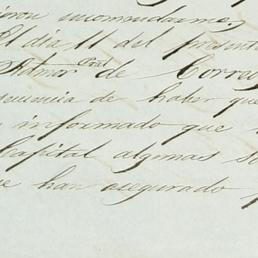 incomodarme,
El dia 11 del present
Admor Pral de Correo
cuencia de haber que
informado que
Capital algunas
se han asegurado